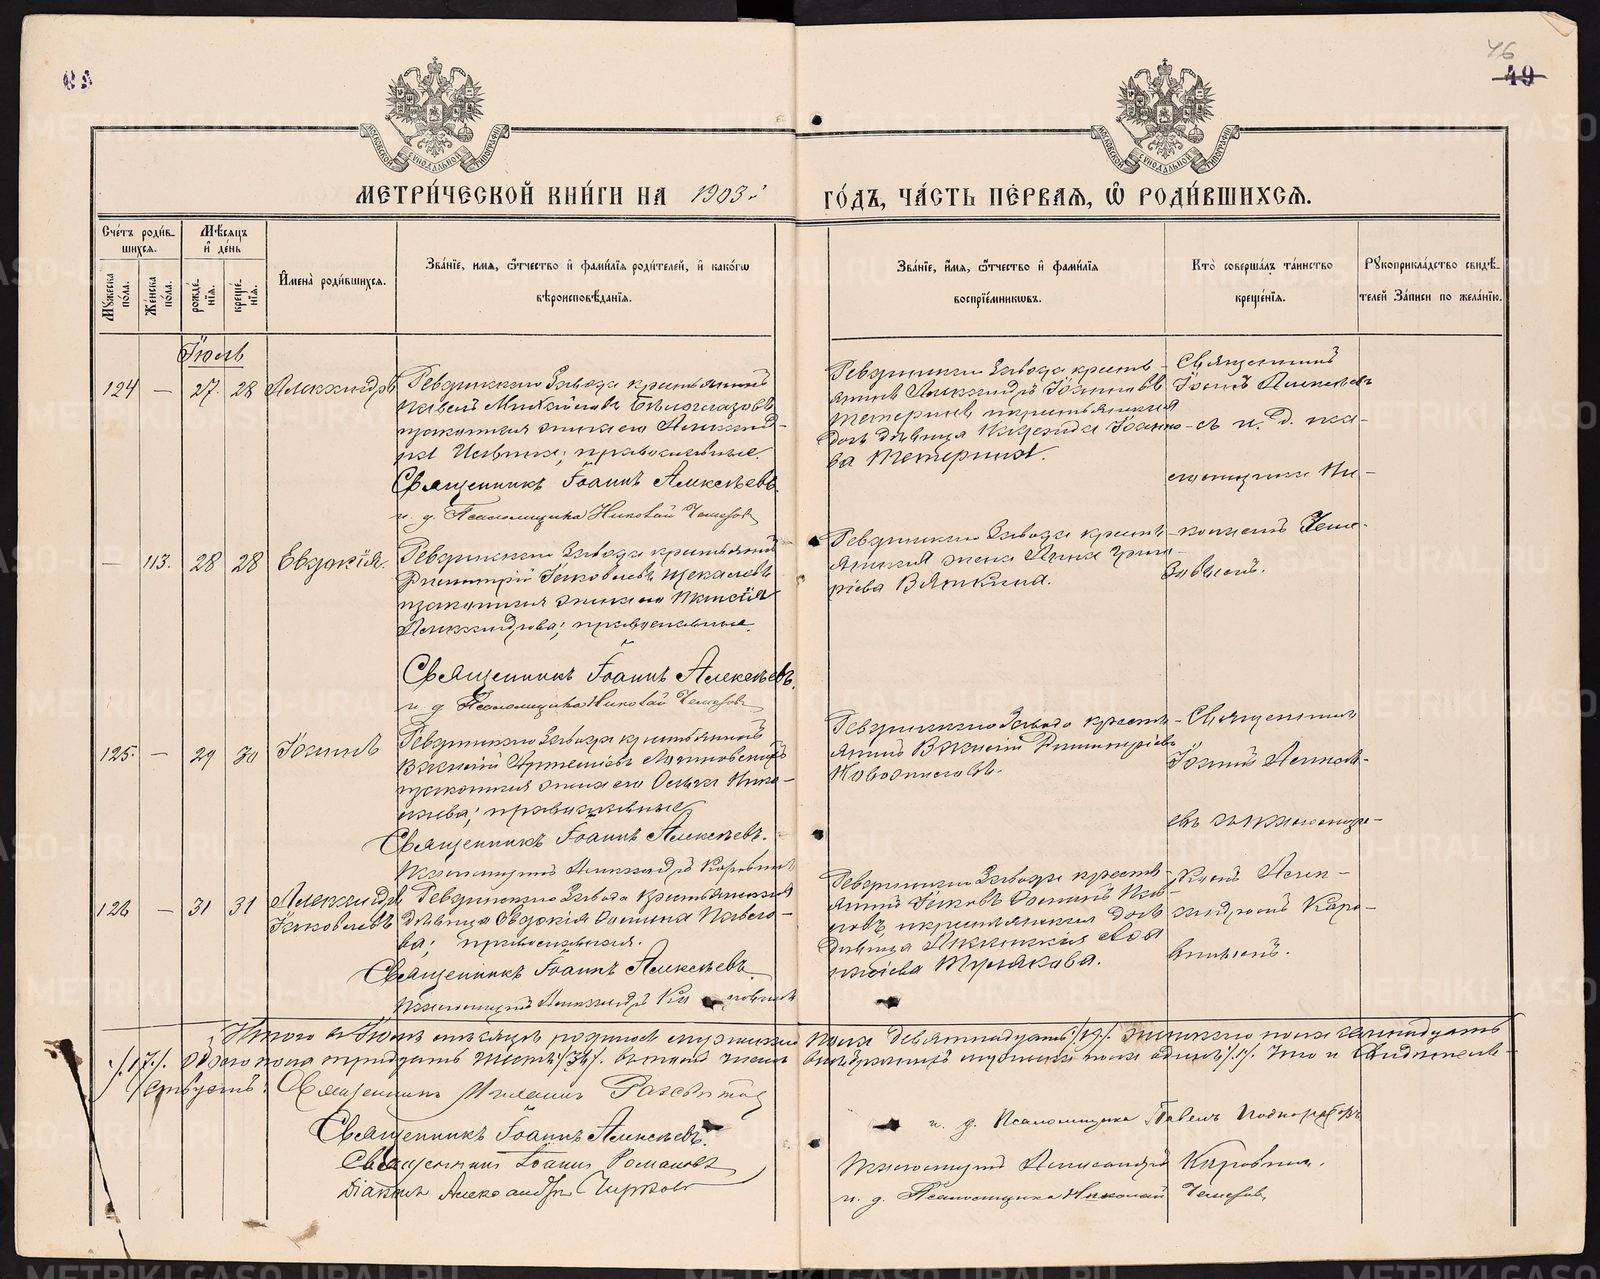 46
49
МОСКОВСКОЙ СУНОДАЛЬНОЙ ТИПОГРАФІИ
МОСКОВСКОЙ СУНОДАЛЬНОЙ ТИПОГРАФІИ
МЕТРИ́ЧЕСКОЙ КНИ́ГИ НА 1903й
ГО́ДЪ, ЧА́СТЬ ПЕ́РВАѦ, Ѽ РОДИ́ВШИХСѦ.
Сче́тъ роди́в-
шихсѧ.
Му́жеска по́ла.
Же́нска по́ла.
Мѣ́сѧцъ
и҆ де́нь
рожде́-нїѧ.
креще́-нїѧ.
И҆мена̀ роди́вшихсѧ.
Зва́нїе, и҆мѧ, ѻ҆́тчество и҆ фами́лїѧ роди́телей, и҆ како́гѡ
вѣроисповѣ́данїѧ.
Зва́нїе, и҆́мѧ, ѻ҆́тчество и҆ фами́лїѧ
воспрїе́мникѡвъ.
Кто̀ соверша́лъ та́инство
креще́нїѧ.
Рꙋкоприкла́дство свидѣ́-
телей за́писи по жела́нїю.
Іюль
124 — 27. 28 Александръ
Ревдинскаго Завода крестьянинъ
Павелъ Михайловъ Бѣлоглазовъ
и законная жена его Александ-
ра Ильина; православные.
Священникъ Іоаннъ Алексѣевъ.
и. д. Псаломщика Николай Чемезовъ
Ревдинскаго Завода кресть-
янинъ Александръ Іоанновъ
Тетеринъ и крестьянская
дочь дѣвица Надежда Іоанно-
ва Тетерина.
Священникъ
Іоаннъ Алексѣев-
съ и. д. пса-
ломщика Ни-
колаемъ Чеме-
зовымъ.
— 113. 28 28 Евдокія.
Ревдинскаго Завода крестьянинъ
Димитрій Іаковлевъ Щекалевъ
и законная жена его Таисія
Александрова; православные.
Священникъ Іоаннъ Алексѣевъ.
и. д. Псаломщика Николай Чемезовъ
Ревдинскаго Завода кресть-
янская жена Анна Григо-
ріева Вяткина.
125. — 29 30 Іоаннъ
Ревдинскаго Завода крестьянинъ
Василій Артеміевъ
и законная жена его Ольга Нико-
лаева; православные
Священникъ Іоаннъ Алексѣевъ.
Псаломщикъ Александръ Коровинъ
Ревдинскаго Завода кресть-
янинъ Василій Димитріевъ
Новосиловъ.
Священникъ
Іоаннъ Алексѣ-
евъ съ псаломщи-
комъ Алек-
сандромъ Каро-
винымъ.
126 — 31 31 Александръ
Іаковлевъ
Ревдинскаго Завода крестьянская
дѣвица Евдокія Павло-
ва; православная.
Священникъ Іоаннъ Алексѣевъ
Псаломщикъ Александръ
Ревдинскаго Завода кресть-
янинъ Іаковъ Пав-
ловъ и крестьянская дочь
дѣвица
Турлакова.
Итого въ Іюлѣ мѣсяцѣ родилось мужескаго пола девятнадцать /19/. женскаго пола семнадцать
/17/. обоего пола тридцать шесть /36/. въ томъ числѣ мужескаго пола одинъ /1/. Что и свидѣтель-
ствуютъ: Священникъ
Священникъ Іоаннъ Алексѣевъ.
Священникъ Іоаннъ Романовъ
Діаконъ Александръ Чирковъ
и. д. Псаломщика Павелъ
Псаломщикъ Александръ Коровинъ.
и. д. Псаломщика Николай Чемезовъ
METRIKI.GASO-URAL.RU